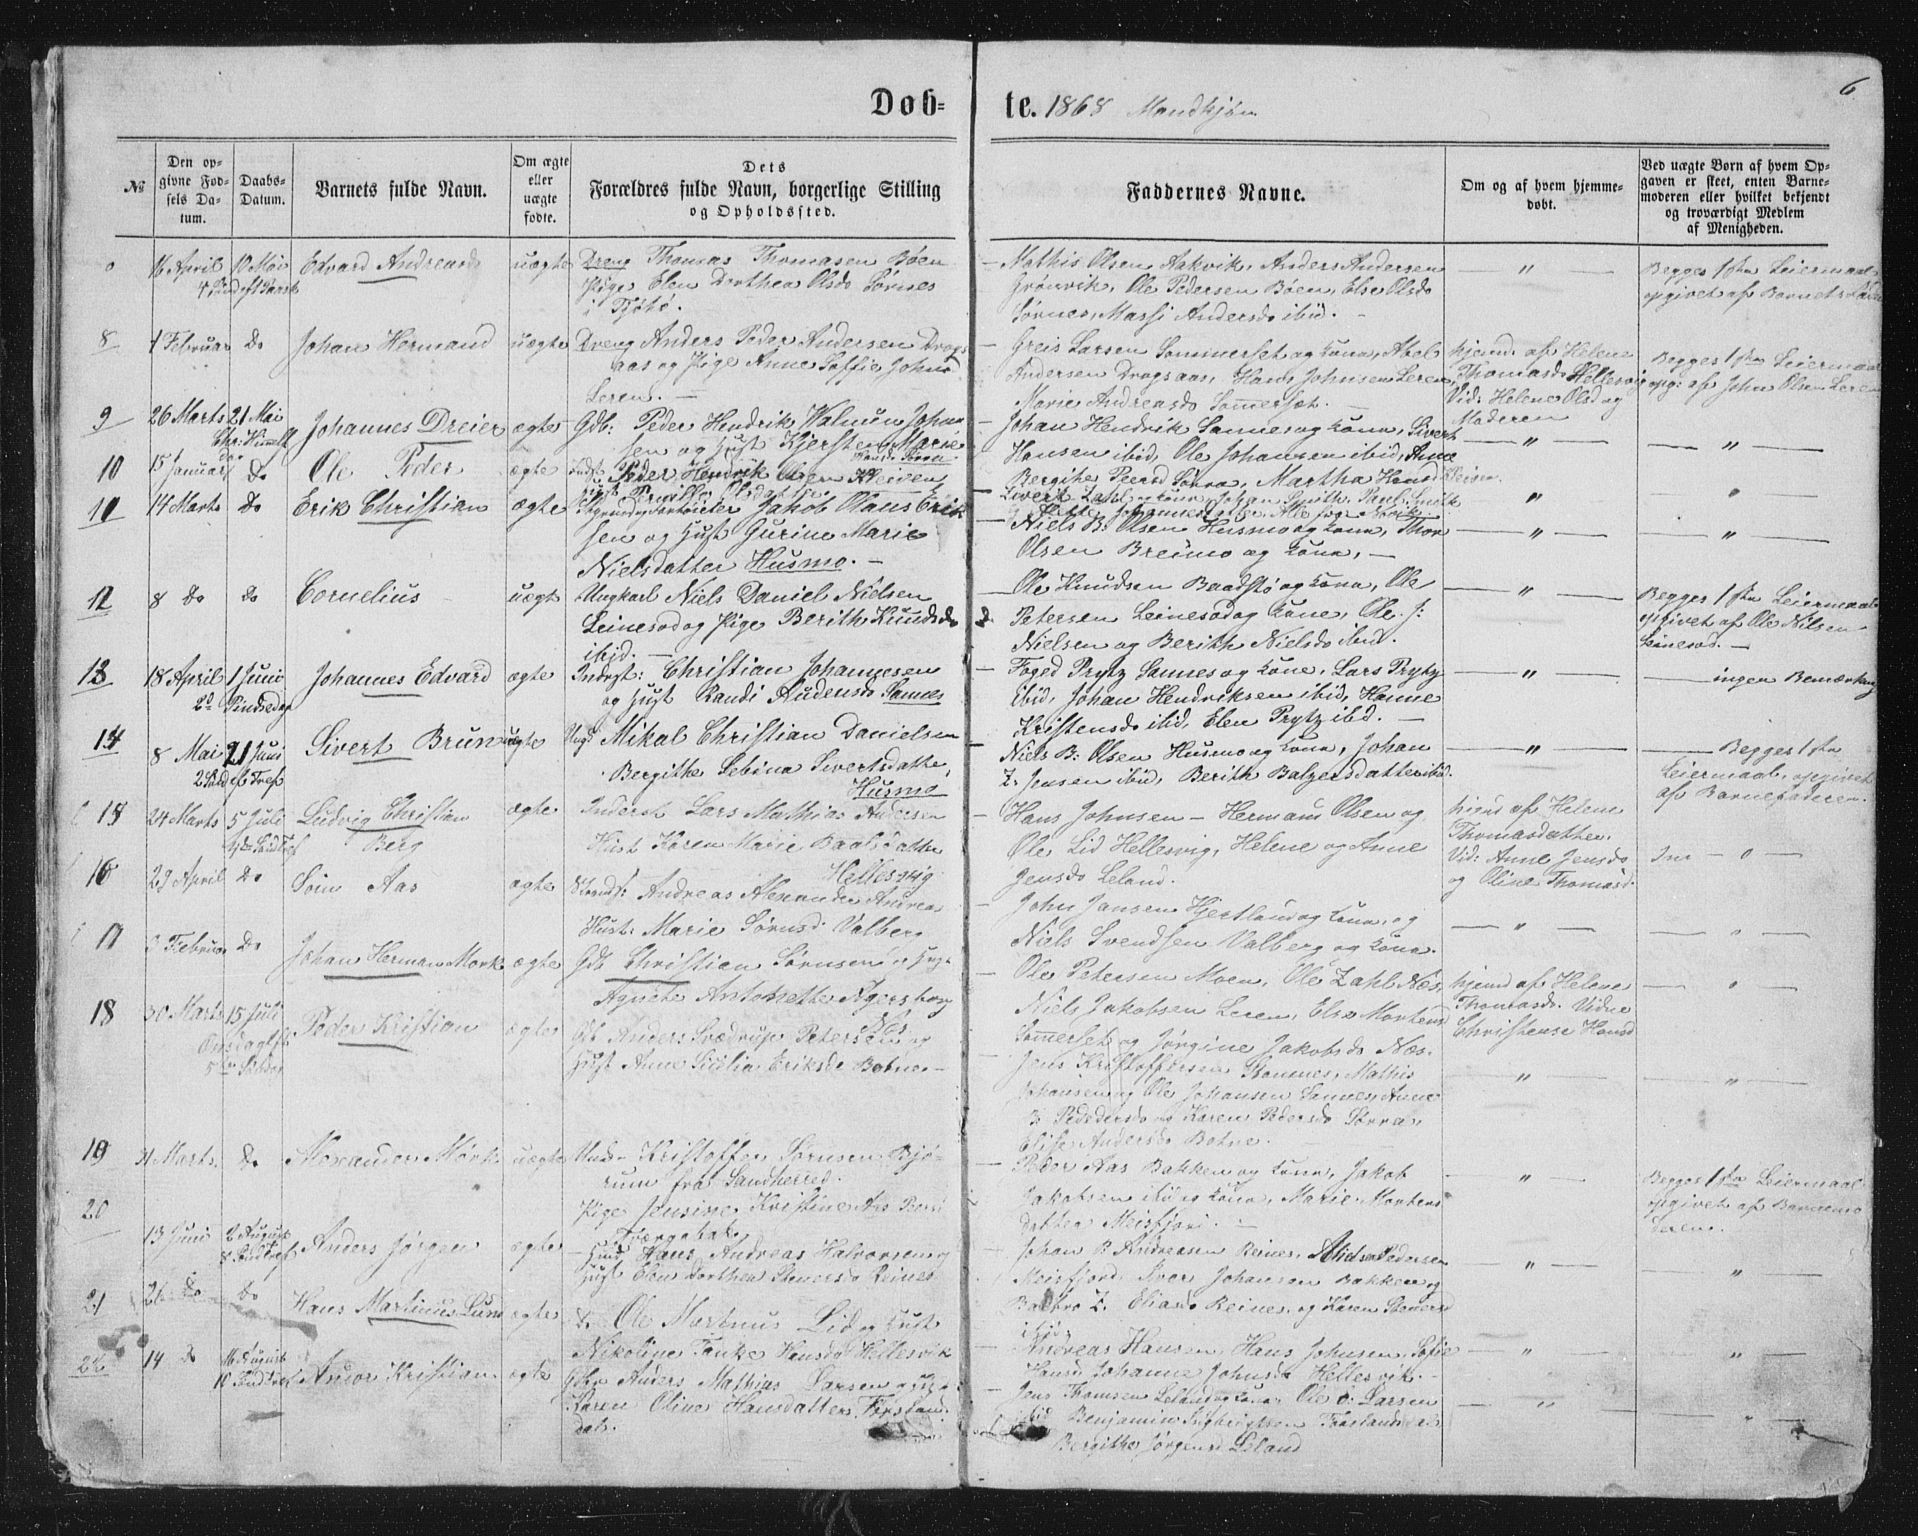 Døb-
te. 1868 Mandkjøn
6
№
Den op-
givne Fød-
sels Da-
tum.
Daabs-
Datum.
Barnets fulde Navn.
Om ægte
eller
uægte
fødte.
Dets
Forældres fulde Navn, borgerlige Stilling
og Opholdssted.
Faddernes Navne.
Om og af hvem hjemme-
døbt.
Ved uægte Børn af hvem Op-
gaven er skeet, enten Barne-
moderen eller hvilket bekjendt
og troværdigt Medlem
af Menigheden.
16 April 10 Mai Edvard Andreas uægte Dreng Thomas Thomasen Bøen
4 Pige Elen Dorthea Olsd. Sørnes
i Tjøtø.
Mathis Olsen Aakvik, Anders Andersen
Grønvik, Ole Pedersen Bøen, Else Olsd
Sørnes, Massi Andersd. ibid. —
— " —
Begges 1ste Leiermaal
opgivet af Barnets
8 1 Februar Do Johan Hermand uægte Dreng Anders Peder Andersen Drags
aas og Pige Anne Soffie Johnsd
Leren. —
Greis Larsen Sommerset og Kona, Abel
Andersen Dragsaas, Hans Johnsen Leren,
Marie Andreasd. Sommerset. —
hjemd. af Helene
Thomasd. Hellesvig
Vid: Helene Olsd og
Moderen
Begges 1ste Leiermaal
opg: af John Olsen Leren
9 26 Marts 21 Mai Johannes Dreier ægte Gdb: Peder Hendrik Johan
Chr: Himmelf sen og Hust Kjersten Marie
Johan Hendrik Sannes og Kona, Sivert
— " — — " —
10 15 Januar Do Ole Peder ægte Indst: Peder Hendrik Olsen Kleiven
Hust Pernille Olsdatter
Hansen ibid, Ole Johansen ibid, Anne
Bergithe Peersd Kona, Martha Hansd Kleiven.
11 14 Marts Do Erik Christian ægte Jakob Olaus Erik
sen og Hust Gurine Marie
Nielsdatter Husmo. —
Sivert Zahl og Kona, Johan Smith, Paul Smith
— Niels B: Olsen Husmo og Kona, Thor
Olsen Breimo og Kona, —
— " — — " —
12 8 Do Do Cornelius uægt Ungkarl Niels Daniel Nielsen
Leinesod og Pige Berith Knudsd.
ibid. —
Ole Knudsen Baadstø og Kona, Ole
Petersen Leinesod og Kone, Ole J:
Nielsen og Berith Nielsd ibid.
— " —
Begges 1ste Leiermaal
opgivet af Ole Nilsen
Leinesod. —
13 18 April 1 Juni Johannes Edvard ægte Indst: Christian Johannesen
2d Pindsedag og Hust Randi Audensd Sannes
— Foged Prytz Sannes og Kone, Lars Prytz
ibid, Johan Hendriksen ibid, Hanne
Kristensd ibid, Elen Prytz ibd. —
— " —
— ingen Bemærkning
14 8 Mai 21 Juni Sivert Brun uægte Ungk Mikal Christian Danielsen
2 Sønd ef Tref Bergithe Lebina Sivertsdatter,
Husmo
Niels B: Olsen Husmo og Kona, Johan
Z. Jensen ibid, Berith Balzersdatter ibid.
— " —
— Begges 1ste
Leiermaal, opgivet
af Barnefaderen.
15 24 Marts 5 Juli Ludvig Christian ægte Inderst Lars Mathias Andersen
4de Søndtref Berg Hust Karen Marie Baalsdatter
Hellesvig
Hans Johnsen — Hermans Olsen og
Ole Lid Hellesvig, Helene og Anne
Jensd Leland.
hjemd af Helene
Thomasdatter.
Vid: Anne Jensd.
og Oline Thomasd.
16 29 April Do Søin Aas ægte Strands: Andreas Alexander Andreas
Hust: Marie Sørensd: Valberg
— John Jansen Hjertland og Kona, og
Niels Svendsen Valberg og Kona.
— " — — " —
17 3 Februar Do Johan Herman Mørk ægte Gdb Christian Sørensen og Hust
Agnete Antonette Agersborg
Næs
Ole Petersen Moen, Ole Zahl Næs,
Niels Jakobsen Leren, Else Mortensd
Sommerset og Jørgine Jakobsd Næs.
hjemd af Helene
Thomasd. Vidne
Christense Hansd
18 30 Marts 15 Juli Peder Kristian ægte Gdb Anders Sverdrup Petersen og
Onsdag ef Hust Anne Sicilia Eriksd. Botne. —
5te Søndag
Jens Kristoffersen Stamnes, Mathis
Johansen og Ole Johansen Sannes, Anne
Pedersd og Karen Pedersd Storra,
Elise Andersd. Botne. —
— " — — " —
19 31 Marts Do Alexander Mørk uægte Und- Kristoffer Sørensen Bjø-
rum fra Sandherred.
Pige Jensine Kristine
— Peder Aas Bakken og Kona, Jakob
Jakobsen ibid og Kona, Marie Mortens
datter Meisfjord. —
— " —
Begges 1ste Leiermaal
opgivet af Barnemo
deren.
20 13 Juni 2 August Anders Jørgen ægte Hans Andreas Halvorsen og
8 Sønd Tref Hust Elen Dorthea Stenersd Reines
Johan P. Andreasen Reines, Niels Pedersen
Meisfjord, Iver Johansen Bakken og
Z. Eliasd Reines, og Karen Stenersd
ibid.
— " — — " —
21 21 Do Do Hans Martinus Lund ægte Do Ole Martinus Lid og Hust
Nikoline Tanke Hansd Hellesvik
Andreas Hansen, Hans Johnsen, Sofie
Hansd Johanne Johnsd. Hellesvik. —
— " — — " —
22 14 Do 16 August Andor Kristian ægte Gdbr Anders Mathias Larsen og Hust
10 Sønd Tref Karen Oline Hansdatter Forsland
dal.
Jens Thomsen Leland og Kona, Ole C: Larsen
ibid Benjamin Sigbrigtsen Forslandsdal
Bergithe Jørgensd Leland
— " — — " —